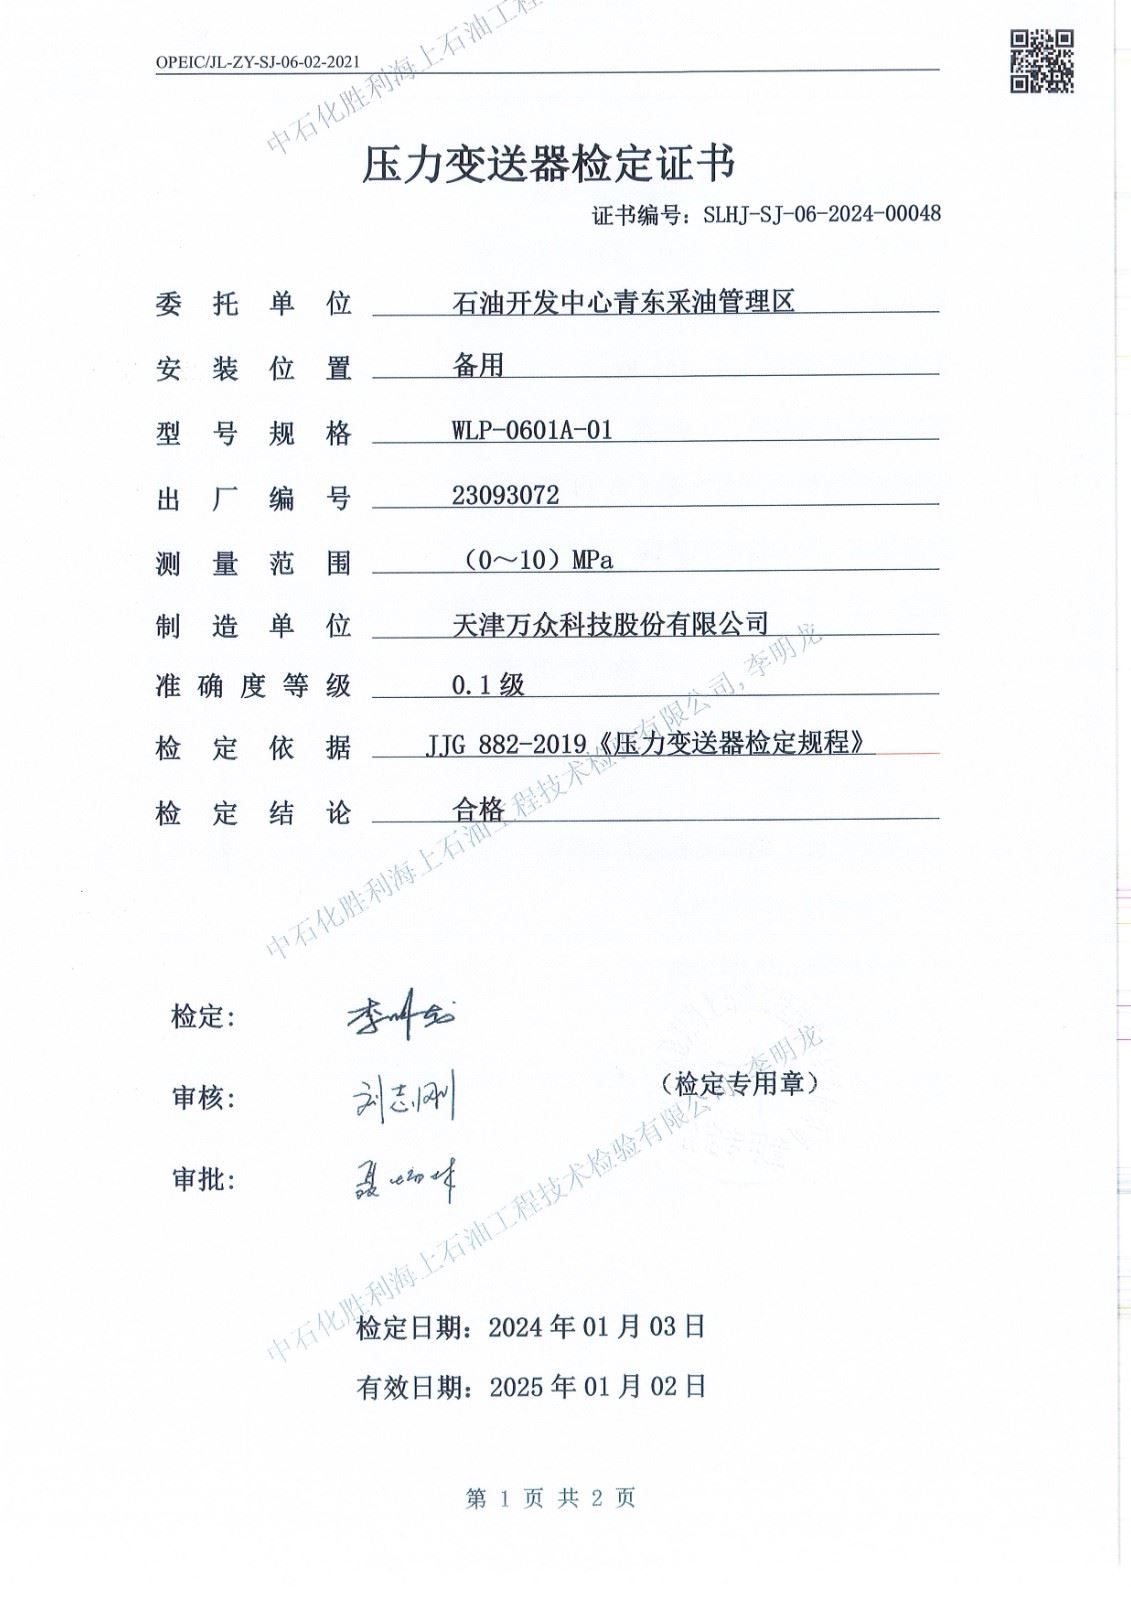 中石化胜利海上石油工程
OPEIC/JL-ZY-SJ-06-02-2021
压力变送器检定证书
证书编号：SLHJ-SJ-06-2024-00048
委托单位 石油开发中心青东采油管理区
安装位置 备用
型号规格 WLP-0601A-01
出厂编号 23093072
测量范围 （0～10）MPa
制造单位 天津万众科技股份有限公司
准确度等级 0.1级
检定依据 JJG 882-2019《压力变送器检定规程》
检定结论 合格
中石化胜利海上石油工程技术检验有限公司,李明龙
检定： 李明龙
审核： 刘志刚
（检定专用章）
审批：
中石化胜利海上石油工程技术检验有限公司,李明龙
检定日期：2024年01月03日
有效日期：2025年01月02日
第 1 页 共 2 页